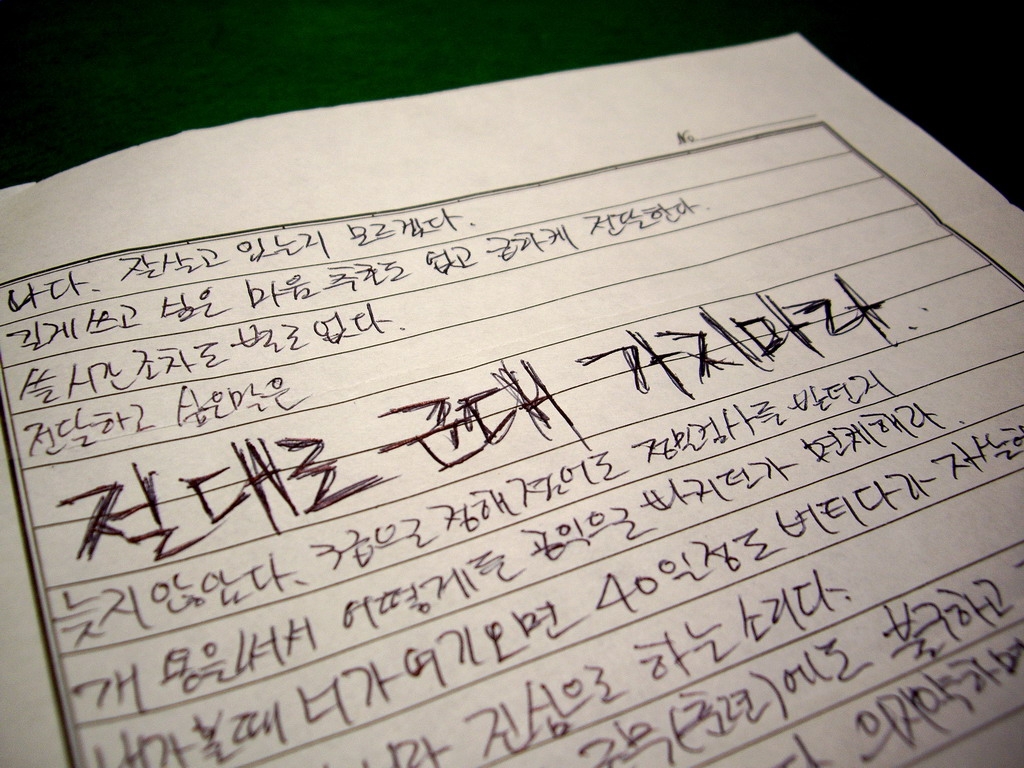 No
나다. 잘살고 있는지 모르겠다.
길게 쓰고 싶은 마음 추호도 없고 급하게 전달한다.
쓸 시간조차도 별로 없다.
전달하고 싶은말은
절대로 군대 가지마라..
늦지 않았다. 3급으로 정해졌어도 정밀검사를 받던지
개 용을써서 어떻게든 공익으로 바뀌던가 면제해라.
내가 볼때 너가 여기오면 40일정도 버티다가
진심으로 하는 소리다.
(훈련)에도 불구하고
의지약하며